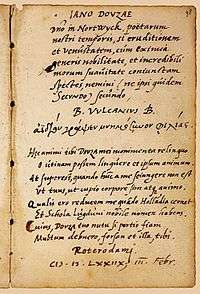 IANO DOVZAE
D̄no in Nortwyck, poëtarum
nostri temporis, si eruditionem
et venustatem, cum eximia
generis nobilitate, et incredibili
morum suauitate coniunctam
spectes nemini (ne ipsi quidem
Secvndo) secundo
B. VVLCANIVS B.
Hęc animi tibi Dovza mei monumenta relinquo
O utinam possem linquere et ipsum animum.
At superest, quando huic a me seiungere non est
Vt tuus ut cupio corpore sim atq animo.
Qualis ero reducem me quado Hollādia cernet
Et Schola Lugduni nobile nomen habens.
Cuius, Dovza tuo nutu si portio fiam
Multum debuero, forsan et illa, tibi.
Roterodami
CIↃ.IↃ.LXXIIX. III. Febr.